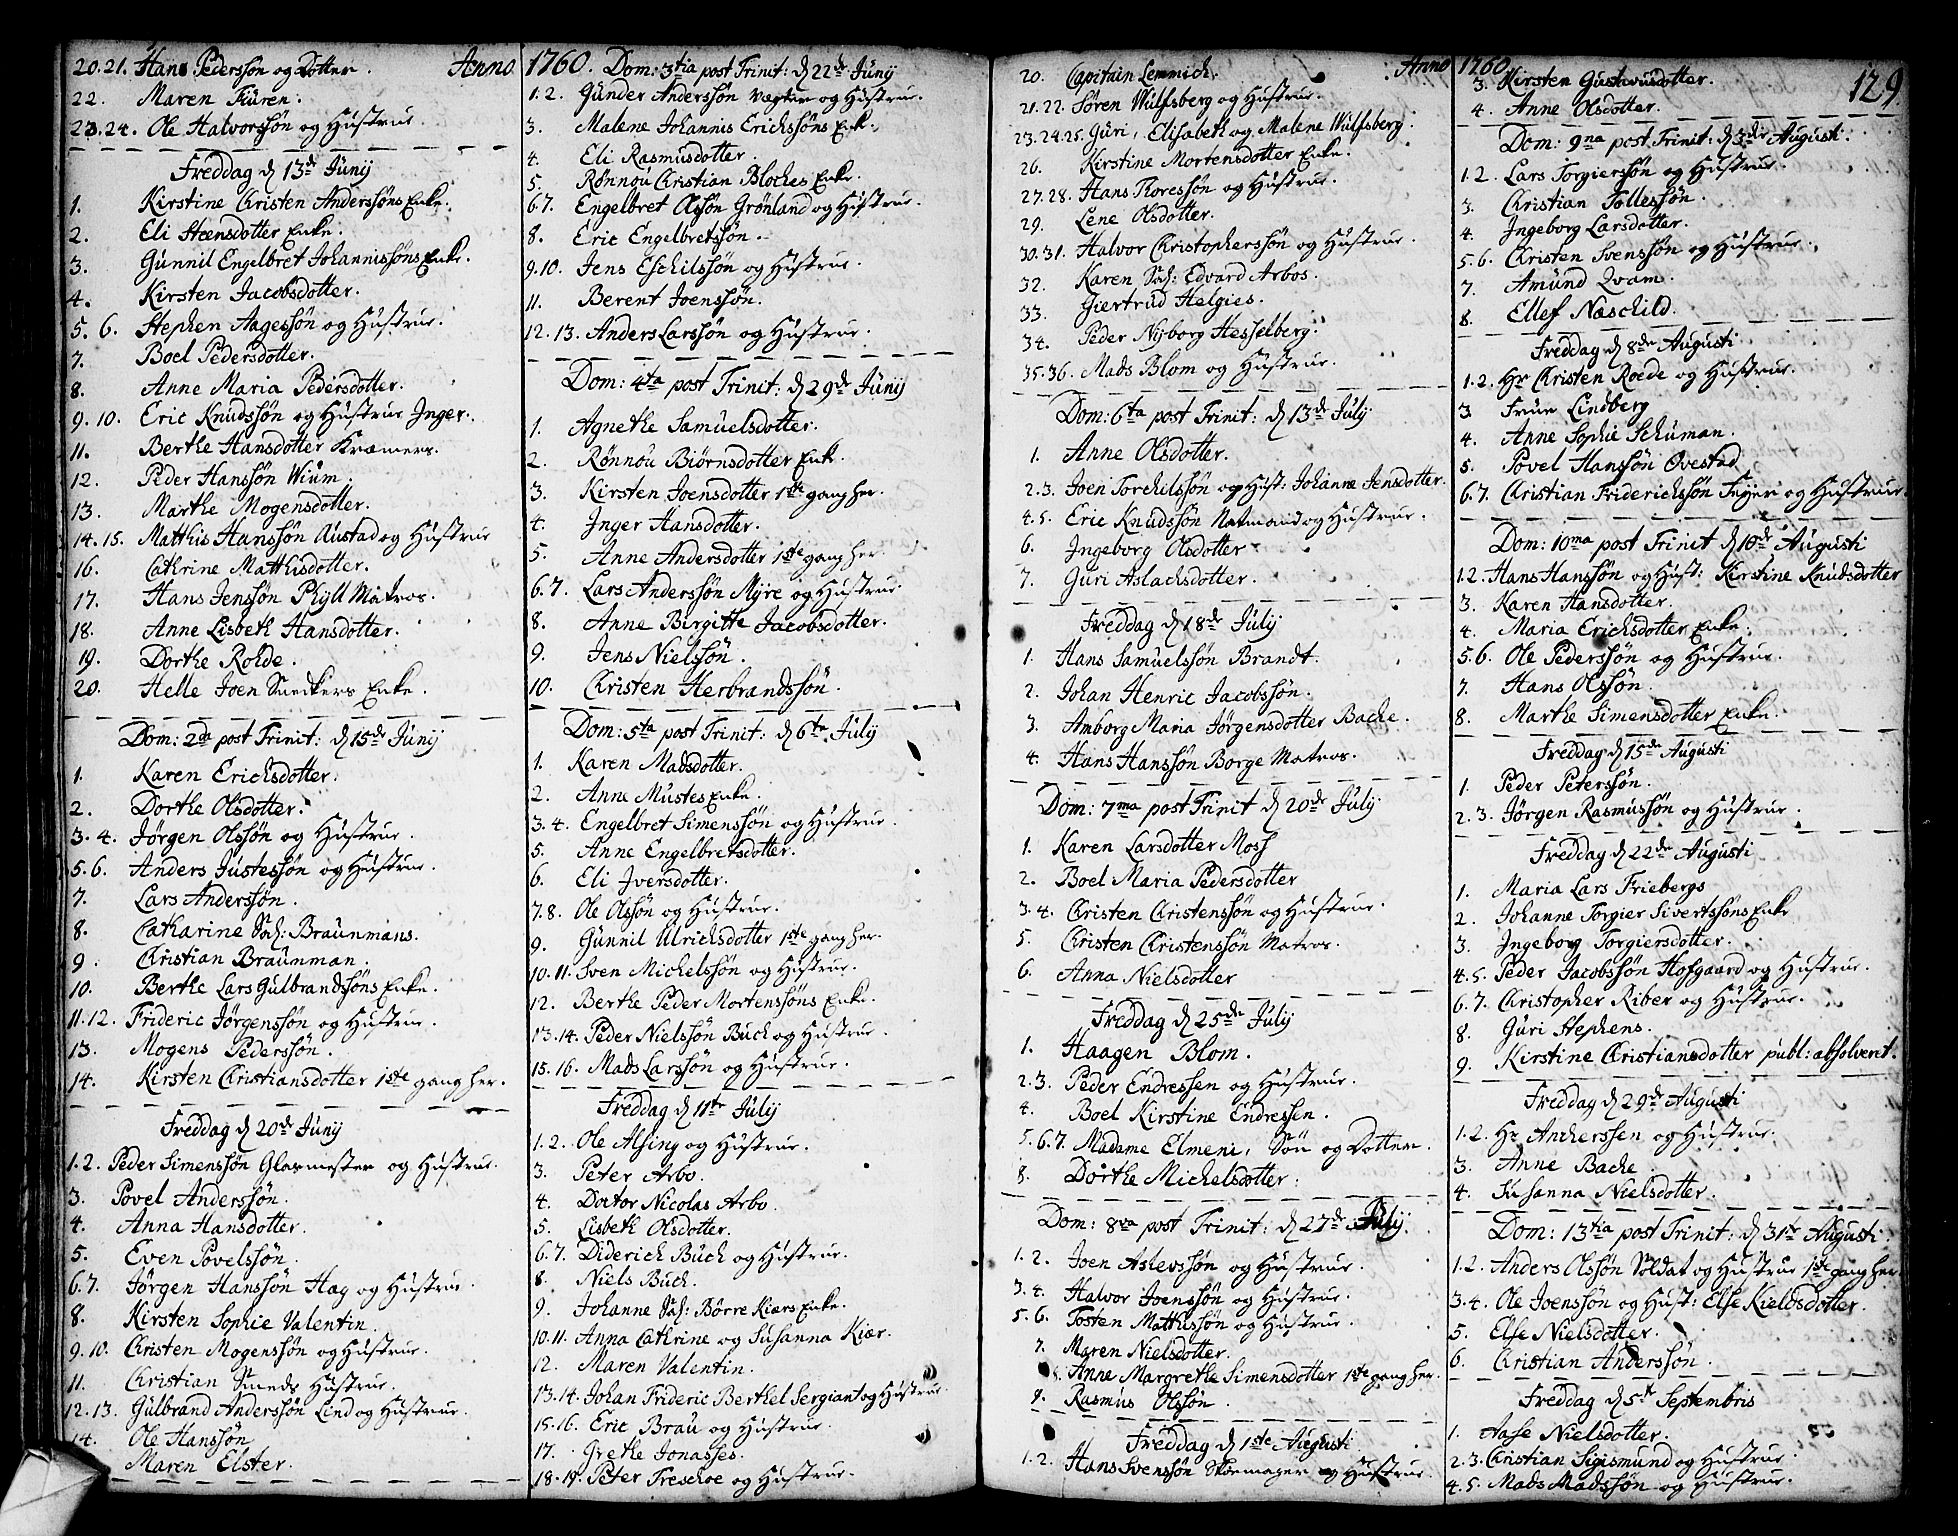 20. 21. Hans Pederssøn og Dotter. Anno
22. Maren Füren.
23. 24. Ole Halvorssøn og Hustrue
Freddag d 13de Junij
1. Kirstine Christen Anderssøns Enke.
2. Eli Steensdotter Enke.
3. Gunnil Engelbret Johannissøns Enke.
4. Kirsten Jacobsdotter.
5. 6. Stephen Aagessøn og Hustrue.
7. Boel Pedersdotter.
8. Anne Maria Pedersdotter.
9. 10. Eric Knudssøn og Hustrue Inger.
11. Berthe Hansdotter Kræmers.
12. Peder Hanssøn Wium.
13. Marthe Mogensdotter.
14. 15. Matthis Hanssøn Austad og Hustrue
16. Cathrine Matthisdotter.
17. Hans Jenssøn Phyll Matros.
18. Anne Lisbeth Hansdotter.
19. Dorthe Rohde.
20. Helle Joen Snedkers Enke.
Dom: 2da post Trinit: d 15de Junij
1. Karen Erichsdotter.
2. Dorthe Olsdotter.
3. 4. Jørgen Olssøn og Hustrue.
5. 6. Anders Justessøn og Hustrue.
7. Lars Anderssøn.
8. Catharine Sal: Braunmans.
9. Christian Braunman.
10. Berthe Lars Gulbrandsøns Enke.
11. 12. Frideric Jørgenssøn og Hustrue.
13. Mogens Pederssøn.
14. Kirsten Christiansdotter 1ste gang her.
Freddag d 20de Junij
1. 2. Peder Simenssøn Glarmester og Hustrue.
3. Povel Anderssøn.
4. Anna Hansdotter.
5. Even Povelssøn.
6. 7. Jørgen Hanssøn Hag og Hustrue
8. Kirsten Sophie Valentin.
9. 10. Christen Mogenssøn og Hustrue.
11. Christian Smeds Hustrue.
12. 13. Gulbrand Anderssøn Lind og Hustrue.
14. Ole Hanssøn
Maren Elster.
1760. Dom: 3tia post Trinit: d 22de Junij
1. 2. Gunder Anderssøn Vægter og Hustrue.
3. Malene Johannis Erichssøns Enk:
4. Eli Rasmusdotter.
5. Rønnou Christian Bloches Enke.
6 7. Engelbret Olssøn Grønland og Hustrue.
8. Eric Engelbretssøn.
9. 10. Jens Eschilssøn og Hustrue.
11. Berent Joenssøn.
12. 13. Anders Larssøn og Hustrue.
Dom: 4ta post Trinit: d 29de Junij
1. Agnethe Samuelsdotter.
2. Rønnou Biørnsdotter Enk.
3. Kirsten Joensdotter 1ste gang her.
4. Inger Hansdotter.
5. Anne Andersdotter 1ste gang her.
6. 7. Lars Anderssøn Myre og Hustrue.
8. Anne Birgitte Jacobsdotter.
9. Jens Nielssøn.
10. Christen Herbrandssøn.
Dom: 5ta post Trinit: d 6te July
1. Karen Madsdotter.
2. Anne Mustes Enke.
3. 4. Engelbret Simenssøn og Hustrue.
5. Anne Engelbretsdotter.
6. Eli Iversdotter.
7. 8. Ole Olssøn og Hustrue.
9. Gunnil Ulrichsdotter 1ste gang her.
10. 11. Sven Michelssøn og Hustrue.
12. Berthe Peder Mortenssøns Enke.
13. 14. Peder Nielssøn Buch og Hustrue.
15. 16. Mads Larssøn og Hustrue.
Freddag d 11te July
1. 2. Ole Alsing og Hustrue.
3. Peter Arbo.
4. Doctor Nicolas Arbo.
5. Lisbeth Olsdotter.
6. 7. Diderich Buch og Hustrue.
8. Niels Buch.
9. Johanne Sal: Børre Kiærs Enke.
10. 11. Anna Cathrine og Susanna Kiær.
12. Maren Valentin.
13. 14. Johan Frideric Berthel Sergiant og Hustrue.
15. 16. Eric Brau og Hustrue
17. Grethe Jonasses.
18. 19. Peter Treschoe og Hustrue.
20. Capitain Lemmich. Anno
21. 22. Søren Wulfsberg og Hustrue.
23. 24. 25. Guri, Elisabeth og Malene Wulfsberg.
26. Kirstine Mortensdotter Enke.
27. 28. Hans Thoressøn og Hustrue.
29. Lene Olsdotter.
30. 31. Halvor Christopherssøn og Hustrue.
32. Karen Sal: Edvard Arbos.
33. Giertrud Helgies.
34. Peder Nyborg Hesselberg.
35. 36. Mads Blom og Hustrue.
Dom: 6ta post Trinit: d 13de July
1. Anne Olsdotter.
2. 3. Joen Torchilssøn og Hust: Johanne Jensdotter.
4. 5. Eric Knudssøn Natmand og Hustrue.
6. Ingeborg Olsdotter
7. Guri Aslachsdotter.
Freddag d 18de July
1. Hans Samuelssøn Brandt.
2. Johan Henric Jacobssøn.
3. Amborg Maria Jørgensdotter Bache.
4. Hans Hanssøn Borge Matros.
Dom: 7ma post Trinit d 20de July
1. Karen Larsdotter Moss
2. Boel Maria Pedersdotter
3. 4. Christen Christenssøn og Hustrue.
5. Christen Christenssøn Matros.
6. Anna Nielsdotter
Freddag d 25de July
1. Haagen Blom.
2. 3. Peder Endressen og Hustrue.
4. Boel Kirstine Endressen.
5. 6. 7. Madame Elmeni, Søn og Dotter.
8. Dorthe Michelsdotter.
Dom: 8va post Trinit: d 27de July.
1. 2. Joen Aslevssøn og Hustrue.
3. 4. Halvor Joenssøn og Hustrue.
5. 6. Tosten Matthissøn og Hustrue.
7. Maren Nielsdotter.
Anne Margrethe Simensdotter 1ste gang her.
9. Rasmus Olssøn.
Freddag d 1ste Augusti
1. 2. Hans Svenssøn Skoemager og Hustrue.
1760. 129
3. Kirsten Gustavusdotter.
4. Anne Olsdotter.
Dom: 9na post Trinit: d 3die Augusti.
1 2. Lars Torgierssøn og Hustrue.
3. Christian Tollessøn.
4. Ingeborg Larsdotter.
5. 6. Christen Svenssøn og Hustrue.
7. Amund Qvam.
8. Ellef Næschild.
Freddag d 8de Augusti
1. 2. Hr Christen Roede og Hustrue.
3 Frue Lindberg
4. Anne Sophie Schuman.
5. Povel Hanssøn Ovestad
6. 7. Christian Friderichssøn Feyer og Hustrue.
Dom: 10ma post Trinit d 10de Augusti
1. 2. Hans Hanssøn og Hust: Kirstine Knudsdotter
3. Karen Hansdotter.
4. Maria Erichsdotter Enke.
5 6. Ole Pederssøn og Hustrue.
7. Hans Olssøn.
8. Marthe Simensdotter Enke.
Freddag d 15de Augusti
1. Peder Peterssøn.
2. 3. Jørgen Rasmussøn og Hustrue.
Freddag d 22de Augusti
1. Maria Lars Friebergs
2. Johanne Torgier Sivertssøns Enke
3. Ingeborg Torgiersdotter.
4. 5. Peder Jacobssøn Hofgaard og Hustrue.
6. 7. Christopher Riber og Hustrue.
8. Guri Stephens.
9. Kirstine Christiansdotter publ: absolveret.
Freddag d 29de Augusti
1. 2. Hr Ancherssen og Hustrue.
3. Anne Bache.
4. Susanna Nielsdotter.
Dom: 13tia post Trinit: d 31te Augusti
1. 2. Anders Olssøn Soldat og Hustrue 1ste gang her.
3. 4. Ole Joenssøn og Hust: Else Kieldsdotter.
5. Else Nielsdotter.
6. Christian Anderssøn.
Freddag d 5te Septembris
1. Aase Nielsdotter.
2. 3. Christian Sigismund og Hustrue
4. 5. Mads Madssøn og Hustrue.